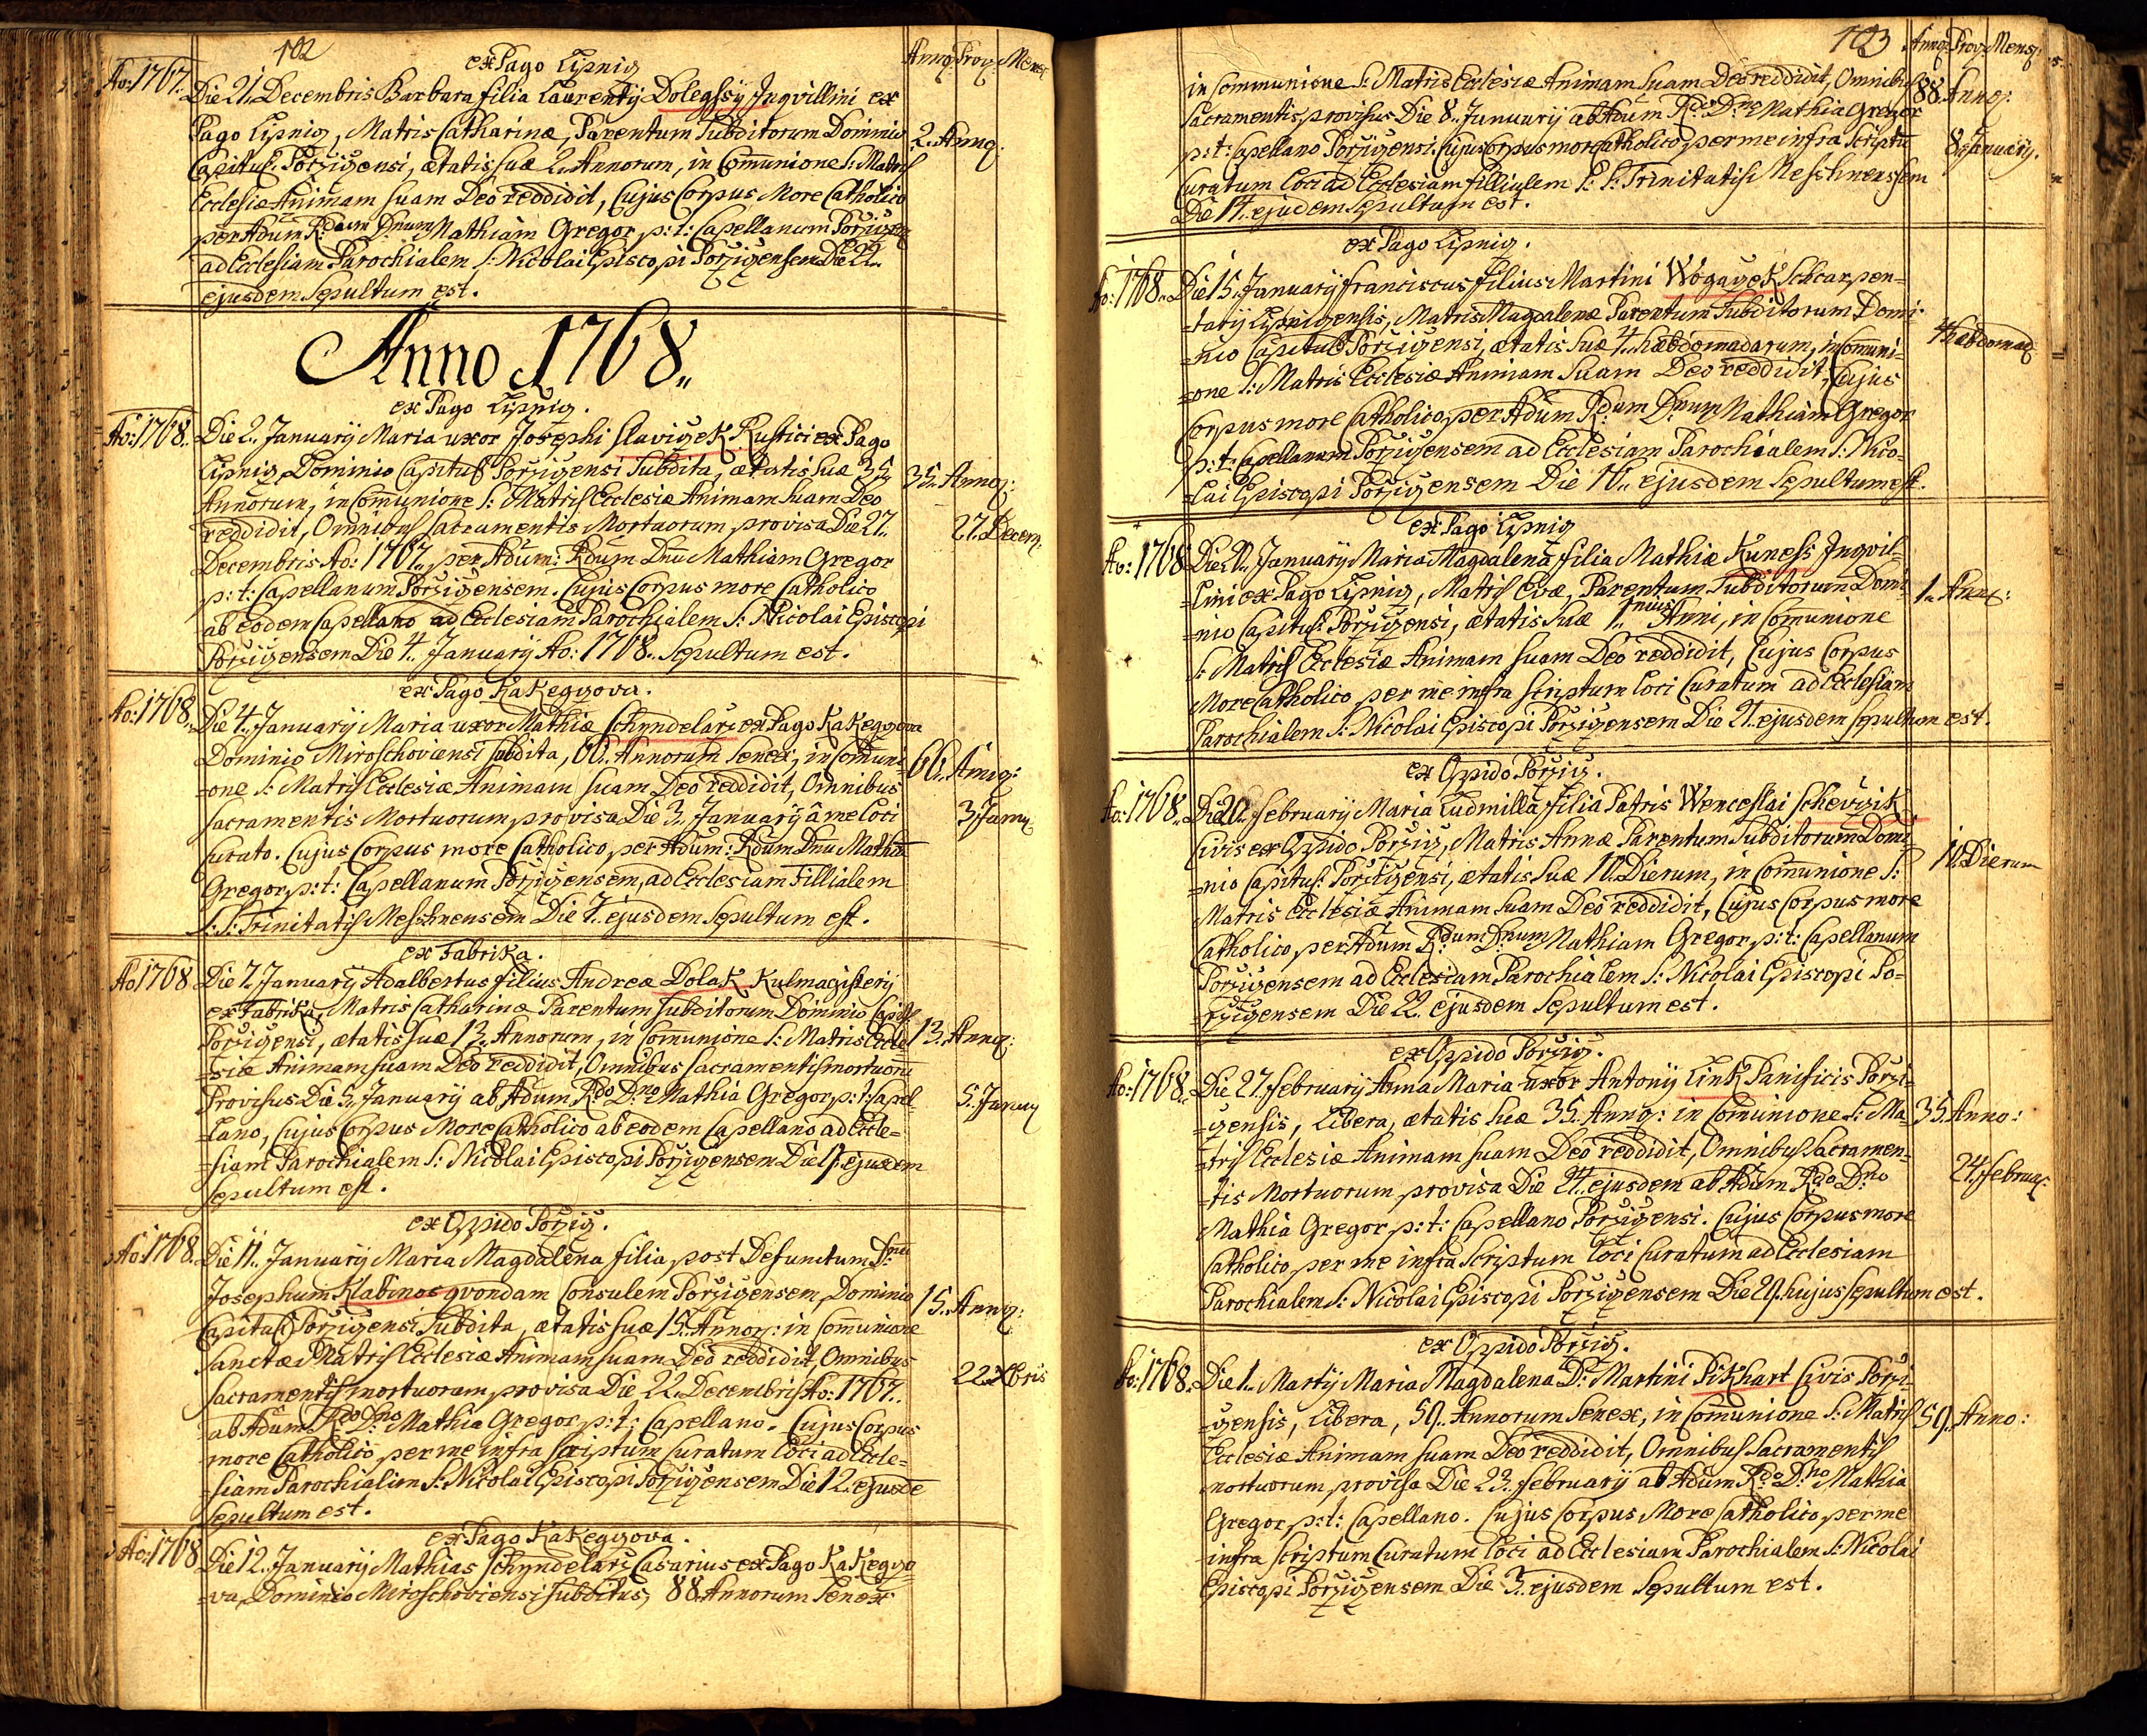 102
Anno: Prov: Mens:
ex Pago Lipnitz
Ao: 1767. Die 21. Decembris Barbara filia Laurentÿ Doleghsÿ Inqvillini ex
Pago Lipnitz, Matris Catharinæ, Parentum Subditorum Dominio 2. Annoȝ:
Capitul: Porzizensi, ætatis suæ 2. Annorum, in Com̄unione S: Matris
Ecclesiæ Animam suam Deo reddidit, Cujus Corpus More Catholico
per Adum Rdum Dnum Mathiam Gregor p: t: Capellanum
ad Ecclesiam Parochialem S: Nicolai Episcopi Porzizensem Die 22.
ejusdem Sepultum est.
Anno 1768.
ex Pago Lipnitz.
Ao: 1768. Die 2. Januarÿ Maria uxor Josephi Slavizek Rustici ex Pago
Lipnitz, Dominio Capitul: Porzizensi Subdita, ætatis suæ 35. 35. Annoȝ:
Annorum, in Com̄unione S: Matris Ecclesiæ Animam suam Deo
reddidit, Omnibus Sacramentis Mortuorum provisa Die 27. 27. Decem:
Decembris Ao: 1767. per Adum: Rdum Dnū Mathiam Gregor
p: t: Capellanum Porzizensem. Cujus Corpus more Catholico
ab eodem Capellano ad Ecclesiam Parochialem S: Nicolai Episcopi
Porzizensem Die 4. Januarÿ Ao: 1768. Sepultum est.
ex Pago Kakeggova.
Ao: 1768. Die 4. Januarÿ Maria uxor Mathiæ Schyndelarz ex Pago Kakeggova
Dominio Miroschovensi subdita, 66. Annorum Senex, in Com̄uni- 66. Annoȝ:
=one S: Matris Ecclesiæ Animam suam Deo reddidit, Omnibus
Sacramentis Mortuorum provisa Die 3. Januarÿ â me loci 3. Janu
Curato. Cujus Corpus more Catholico, per Adum: Rdum Dnū Mathiā
Gregor, p: t: Capellanum Porzizensem, ad Ecclesiam Fillialem
S: S: Trinitatis Messhnensem Die 7. ejusdem Sepultum est.
ex Fabrika.
Ao 1768 Die 7. Januarÿ Adalbertus filius Andreæ Dolak Kulmagisterÿ
ex Fabrika, Matris Catharinæ Parentum Subditorum Dominio Capit:
Porzizensi, ætatis suæ 13. Annorum, in Com̄unione S: Matris Eccle 13. Annoȝ:
=siæ Animam suam Deo reddidit, Omnibus Sacramentis mortuorū
Provisus Die 5. Januarÿ ab Adum Rdo Dno Mathia Gregor p: t: Capel- 5. Januaȝ
=lano, Cujus Corpus More Catholico ab eodem Capellano ad Eccle=
=siam Parochialem S: Nicolai Episcopi Porzizensem Die 9. ejusdem
Sepultum est.
ex Oppido Porziz.
Ao: 1768. Die 11. Januarÿ Maria Magdalena filia post Defunctum Dnū
Josephum Klabinos qvondam Consulem Porzizensem, Dominio 15. Annoȝ:
Capitul: Porzizensi Subdita, ætatis suæ 15. Annoȝ: in Com̄unione
Sanctæ Matris Ecclesiæ Animam suam Deo reddidit, Omnibus
Sacramentis mortuorum provisa Die 22. Decembris Ao: 1767. 22. Xbris
ab Adum Rdo Dno Mathia Gregor p: t: Capellano. Cujus Corpus
more Catholico per me infra scriptum Curatum Loci ad Eccle=
=siam Parochialem S: Nicolai Episcopi Porzizensem Die 12. ejusdē
Sepultum est.
ex Pago Kakeggova.
Ao: 1768 Die 12. Januarÿ Mathias Schyndelarz Casarius ex Pago Kakeggo
=va, Dominio Miroschovicensi subditus, 88. Annorum Senex
103 Annoȝ: Prov: Mens:
in Communione S: Matris Ecclesiæ Animam suam Deo reddidit, Omnibus 88. Annoȝ:
Sacramentis provisus Die 8. Januarÿ ab Adum Rdo Dno Mathia Gregor
p: t: Capellano Porzizensi. Cujus Corpus more Catholico per me infra Scriptū 8. Januarÿ.
Curatum loci ad Ecclesiam fillialem S: S: Trinitatis Messhnensem
Die 14. ejudem Sepultum est.
ex Pago Lipnitz.
Ao: 1768. Die 15. Januarÿ Franciscus filius Martini Wogaczek Schcarpen=
=tarÿ Lipnizensis, Matris Magdalenæ Parentum Subditorum Domi-
=nio Capitul: Porzizensi, ætatis suæ 4. hæbdomadarum, in Com̄uni= 4 hæbdomad:
=one S: Matris Ecclesiæ Animam suam Deo reddidit, Cujus
Corpus more Catholico, per Adum Rdum Dnum Mathiam Gregor
p: t: Capellanum Porzizensem ad Ecclesiam Parochialem S: Nico=
=lai Episcopi Porzizensem Die 16. ejusdem Sepultum est.
ex Pago Lipnitz
Ao: 1768 Die 20. Januarÿ Maria Magdalena filia Mathiæ Kunesh Inqvil=
=lini ex Pago Lipnitz, Matris Evæ, Parentum Subditorum Domi= 1. Annoȝ:
=nio Capitul: Porzizensi, ætatis suæ 1. nius Anni, in Com̄unione
S: Matris Ecclesiæ Animam suam Deo reddidit, Cujus Corpus
More Catholico per me infra scriptum loci Curatum ad Ecclesiam
Parochialem S: Nicolai Episcopi Porzizensem Die 21. ejusdem sepultum est.
ex Oppido Porziz.
Ao: 1768. Die 20. Februarÿ Maria Ludmilla filia Patris Wenceslai Schevizik
Civis ex Oppido Porziz, Matris Annæ Parentum Subditorum Domi-
=nio Capitul: Porzizensi, ætatis suæ 10. Dierum, in Com̄unione S: 10. Dierum
Matris Ecclesiæ Animam suam Deo reddidit, Cujus Corpus more
Catholico, per Adum Rdum Dnum Mathiam Gregor p: t: Capellanum
Porzizensem ad Ecclesiam Parochialem S: Nicolai Episcopi Po=
=rzizensem Die 22. ejusdem Sepultum est.
ex Oppido Porziz.
Ao: 1768. Die 27. Februarÿ Anna Maria uxor Antonÿ Link Panificis Porzi-
=zensis, Libera, ætatis suæ 35. Annoȝ: in Com̄unione S: Ma- 35. Anno:
=tris Ecclesiæ Animam suam Deo reddidit, Omnibus Sacramen-
=tis Mortuorum provisa Die 24. ejusdem ab Adum Rdo Dno 24. Februaȝ:
Mathia Gregor p: t: Capellano Porzizensi. Cujus Corpus more
Catholico per me infra scriptum loci Curatum ad Ecclesiam
Parochialem S: Nicolai Episcopi Porzizensem Die 29. hujus sepultum est.
ex Oppido Porziz.
Ao: 1768. Die 1. Martÿ Maria Magdalena D: Martini Pikhart Civis Porzi-
=zensis, Libera, 59. Annorum Senex, in Com̄unione S: Matris 59. Anno:
Ecclesiæ Animam suam Deo reddidit, Omnibus Sacramentis
mortuorum, provisa Die 23. Februarÿ ab Adum Rdo Dno Mathia
Gregor p: t: Capellano. Cujus Corpus More Catholico per me
infra scriptum Curatum loci ad Ecclesiam Parochialem S: Nicolai
Episcopi Porzizensem Die 3. ejusdem Sepultum est.